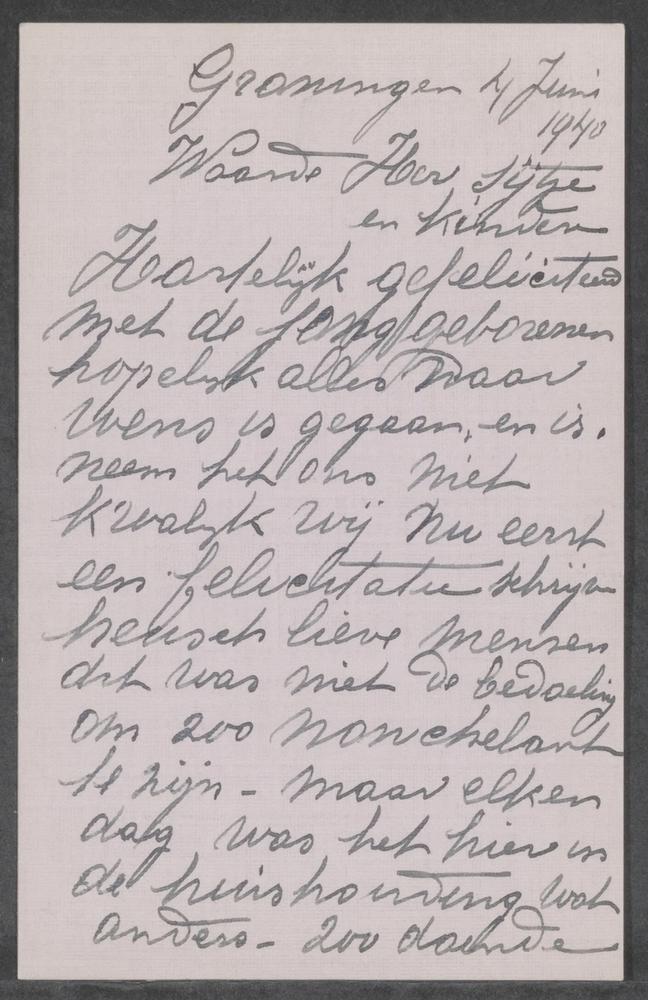 Groningen 4 Juni
1940
Waarde Her Sijtze
en kinderen
Hartelijk gefeliciteerd
met de Jong geborenen
hopelijk alles naar
wens is gegaan, en is.
neem het ons niet
kwalijk wij nu eerst
een felicitatie schrijven
heusch lieve mensen
dit was niet de bedoeling
om zoo nonchelant
te zijn - maar elken
dag was het hier in
de huishouding wat
anders - zoo doende